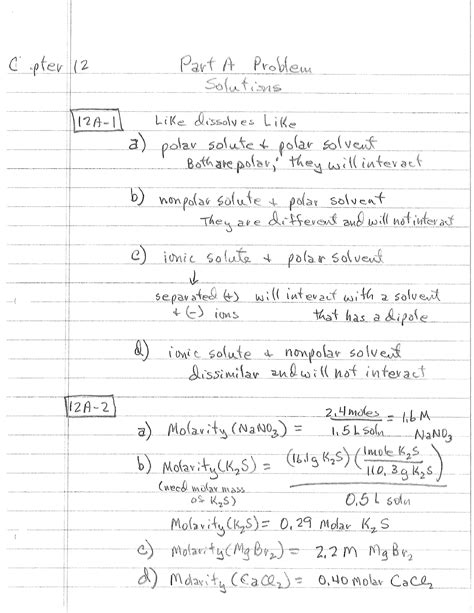 C .pter 12 Part A Problem
Solutions
12A-1 Like dissolves Like
a) polar solute + polar solvent
Both are polar; they will interact
b) nonpolar solute + polar solvent
They are different and will not interact
c) ionic solute + polar solvent
↓
separated (+) will interact with a solvent
+ (-) ions that has a dipole
d) ionic solute + nonpolar solvent
dissimilar and will not interact
12A-2
a) Molarity (NaNO₃) = 2.4 moles / 1.5 L soln = 1.6 M NaNO₃
b) Molarity (K₂S) = (16.1g K₂S) (1 mole K₂S / 110.3g K₂S) / 0.5 L soln
(need molar mass
of K₂S)
Molarity (K₂S) = 0.29 Molar K₂S
c) Molarity (MgBr₂) = 2.2 M MgBr₂
d) Molarity (CaCl₂) = 0.40 Molar CaCl₂